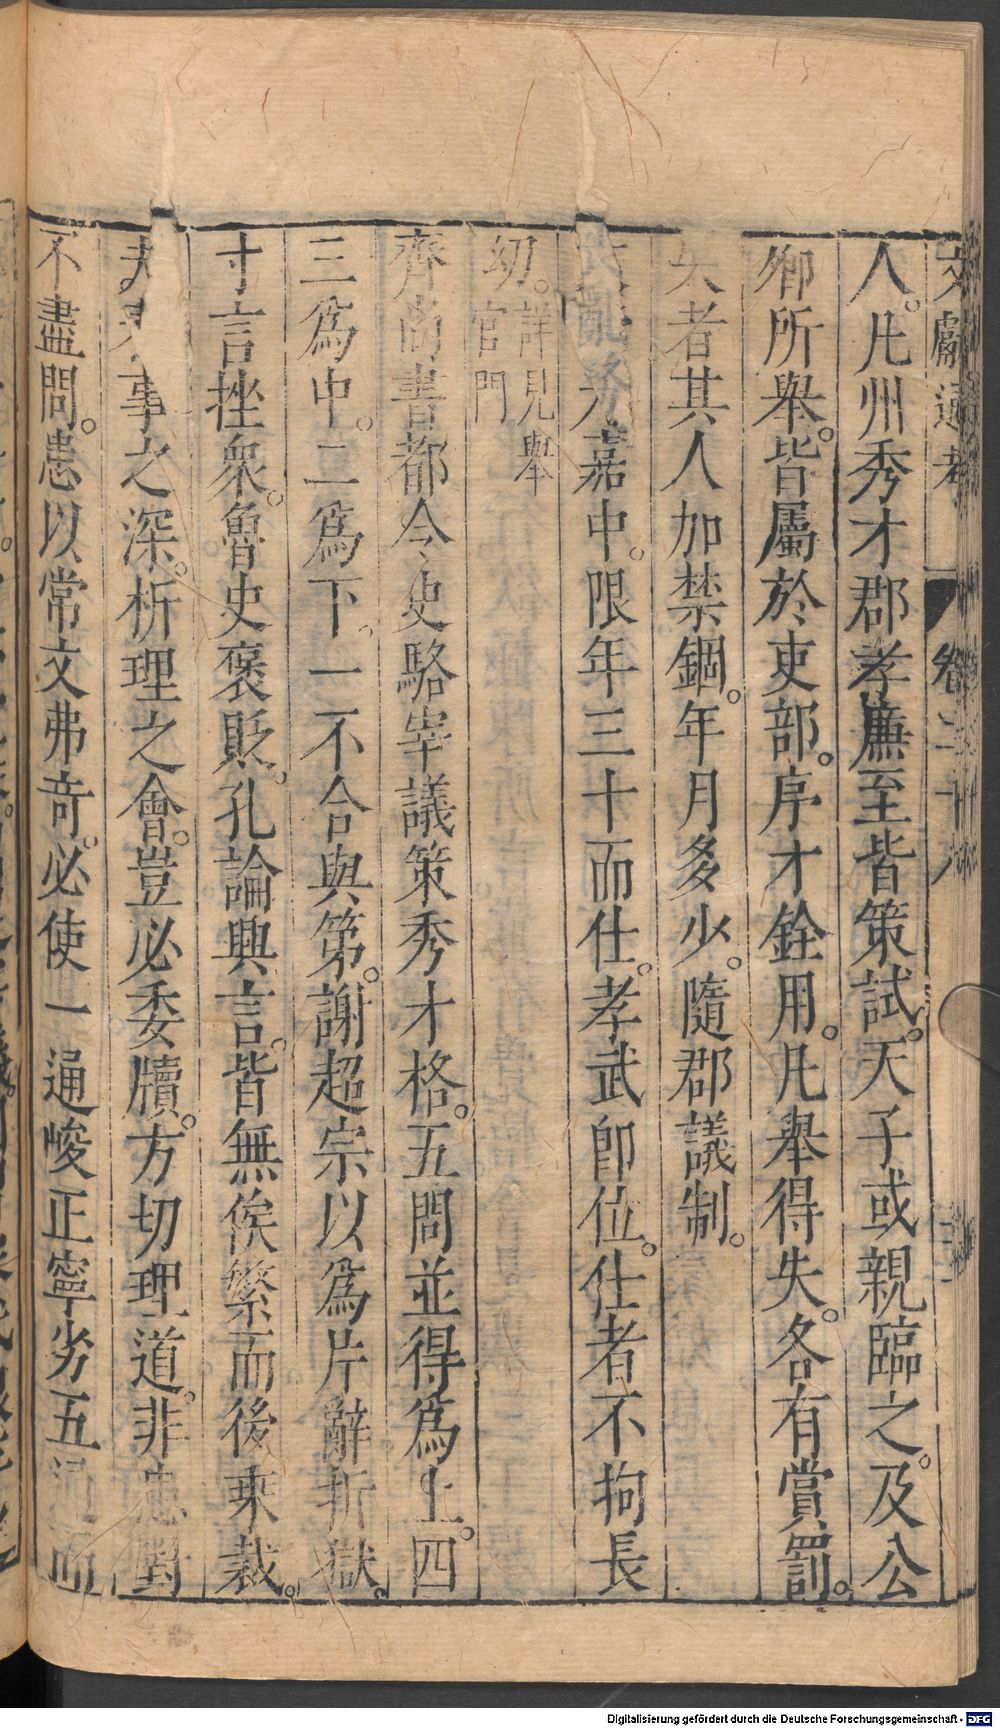 文獻通考 卷二十八
人。凡州秀才郡孝廉至皆策試。天子或親臨之。及公
卿所舉。皆屬於吏部。序才銓用。凡舉得失。各有賞罰。
失者其人加禁錮。年月多少。隨郡議制。
嘉中。限年三十而仕。孝武即位。仕者不拘長
幼。詳見舉
官門
齊尚書都令史駱宰議策秀才格。五問並得爲上。四
三爲中。二爲下。一不合與第。謝超宗以爲片辭折獄。
寸言挫衆。魯史褒貶。孔論興言。皆無俟繁而後秉裁。
夫事之深。析理之會。豈必委牘。方切理道。非患對
不盡問。患以常文弗奇。必使一通峻正寧劣五通而
Digitalisierung gefördert durch die Deutsche Forschungsgemeinschaft - DFG